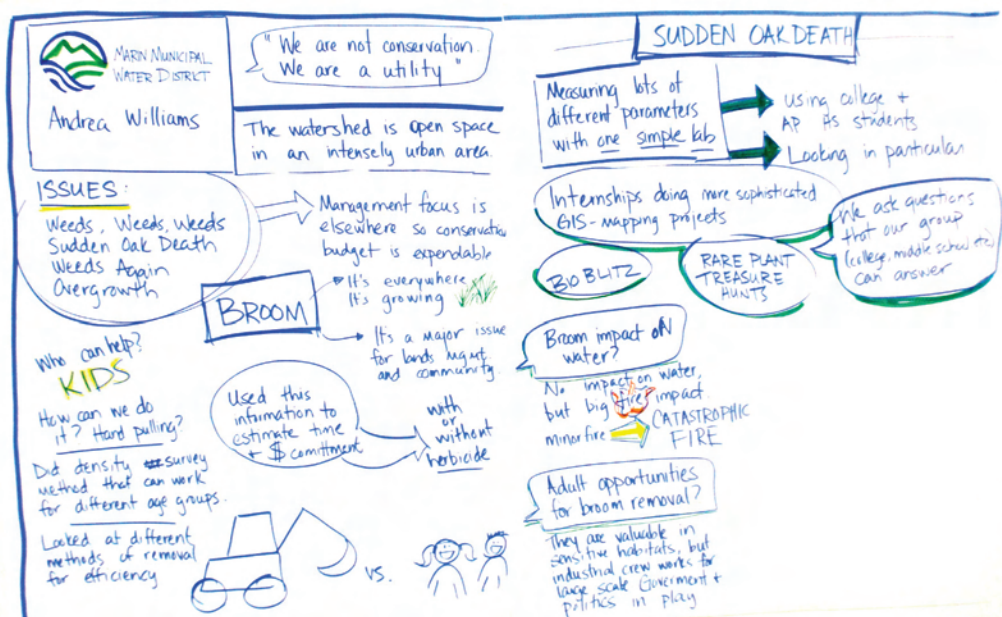 MARIN MUNICIPAL
WATER DISTRICT
Andrea Williams
"We are not conservation.
We are a utility"
The watershed is open space
in an intensely urban area.
ISSUES:
Weeds, Weeds, Weeds
Sudden Oak Death
Weeds Again
Overgrowth
Management focus is
elsewhere so conservation
budget is expendable
BROOM
It's everywhere
It's growing
It's a major issue
for lands mgmt.
and community.
Who can help?
KIDS
How can we do
it? Hand pulling?
Did density survey
method that can work
for different age groups.
Looked at different
methods of removal
for efficiency
Used this
information to
estimate time
+ $ comittment
with
or
without
herbicide
vs.
SUDDEN OAK DEATH
Measuring lots of
different parameters
with one simple lab
using college +
AP HS students
Looking in particular
Internships doing more sophisticated
GIS-mapping projects
BIO BLITZ
RARE PLANT
TREASURE
HUNTS
We ask questions
that our group
(college, middle school etc)
can answer
Broom impact oN
water?
No impact on water,
but big fire impact.
minor fire
CATASTROPHIC
FIRE
Adult opportunities
for broom removal?
They are valuable in
sensitive habitats, but
industrial crew works for
large scale Goverment +
politics in play